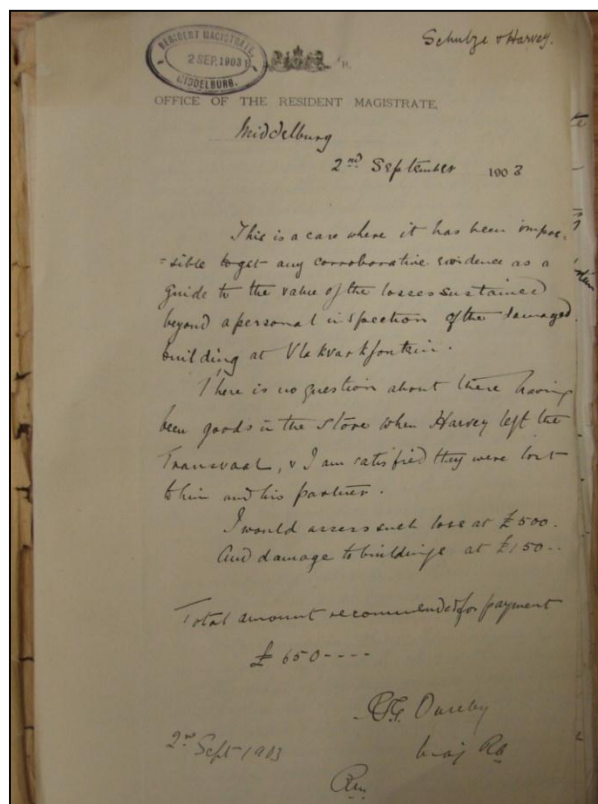 Schulze & Harvey.
RESIDENT MAGISTRATE,
2 SEP. 1903
MIDDELBURG.
OFFICE OF THE RESIDENT MAGISTRATE,
Middelburg
2nd September 1903
This is a case where it has been impos-
=sible to get any corroborative evidence as a
guide to the value of the losses sustained
beyond a personal inspection of the damaged
building at Vlakvarkfontein.
There is no question about there having
been goods in the store when Harvey left the
Transvaal, & I am satisfied they were lost
to him and his partner.
I would assess such loss at £500.
And damage to buildings at £150--
Total amount recommended for payment
£650----
Maj RA
2nd Sept 1903
RM